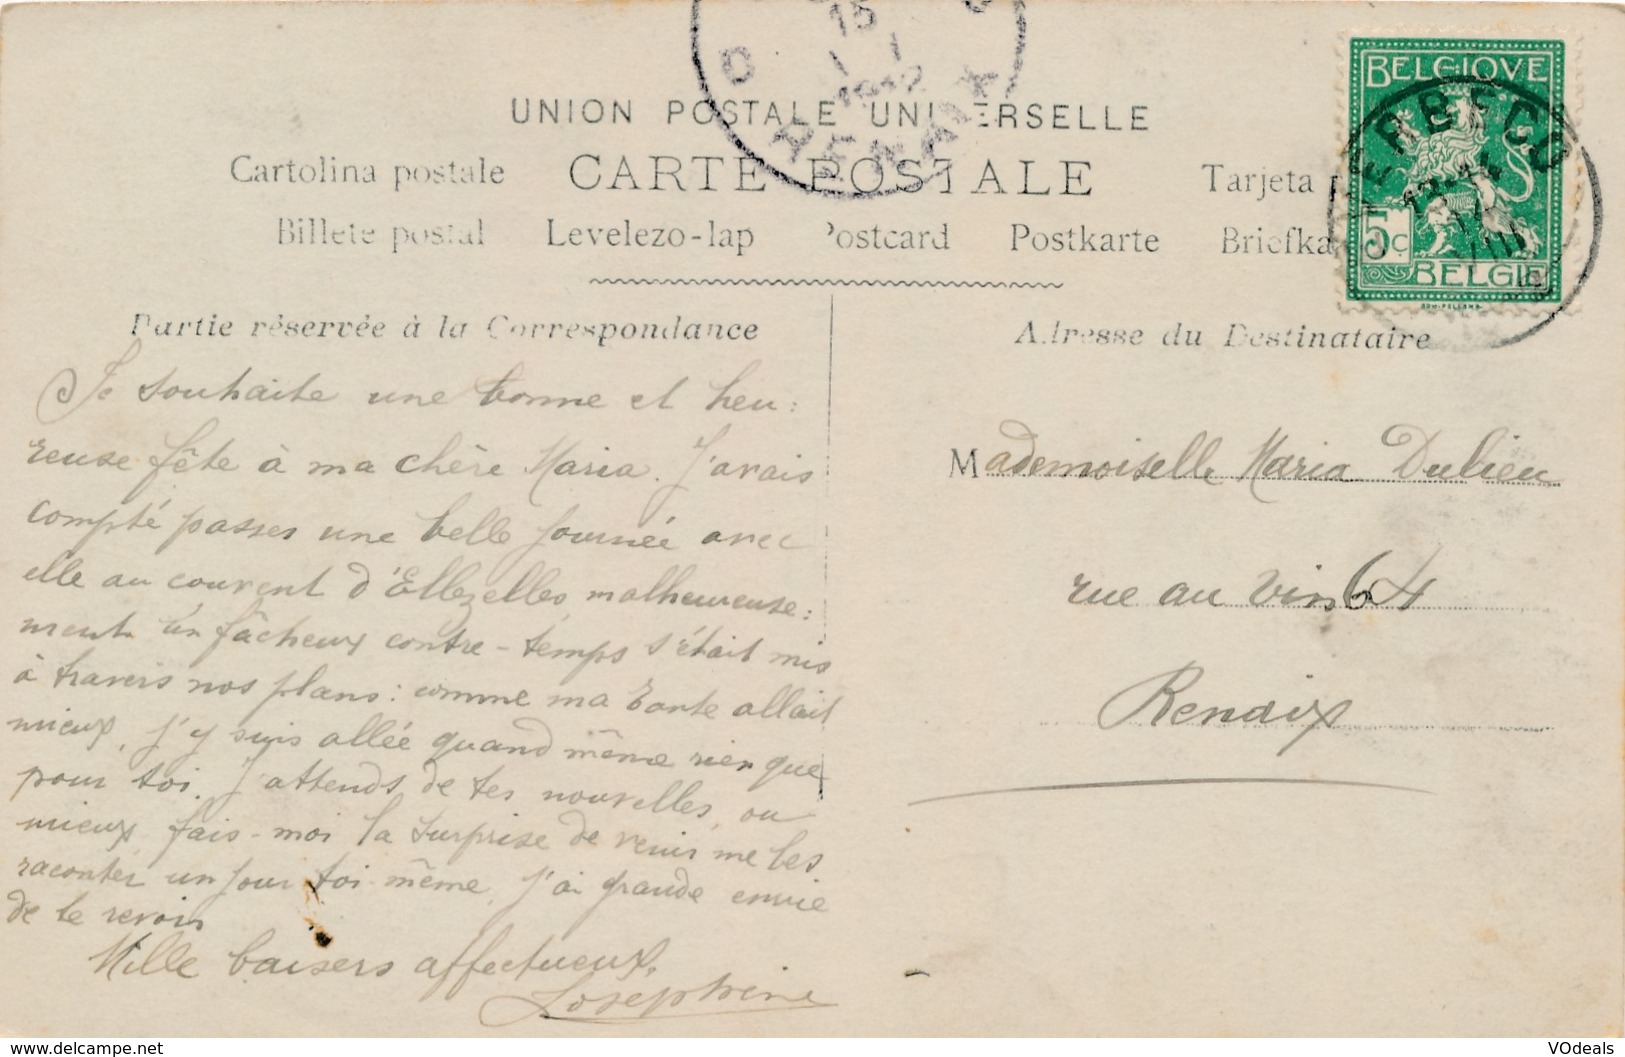 UNION POSTALE UNIVERSELLE
Cartolina postale CARTE POSTALE Tarjeta
Billete postal Levelezo-lap Postcard Postkarte Briefka
BELGIQUE
5c
BELGIË
15
RENAIX
Partie réservée à la Correspondance
Je souhaite une bonne et heu:
reuse fête à ma chère Maria. J'avais
compté passer une belle journée avec
elle au couvent d'Ellezelles malheureuse:
ment un fâcheux contre-temps s'était mis
à travers nos plans: comme ma Tante allait
mieux, j'y suis allée quand même rien que
pour toi. J'attends de tes nouvelles, ou
mieux fais-moi la surprise de venir me les
raconter un jour toi-même, j'ai grande envie
de te revoir
Mille baisers affectueux,
Josephine
Adresse du Destinataire
Mademoiselle Maria Dulieu
rue au vin 64
Renaix
© VOdeals www.delcampe.net
VOdeals